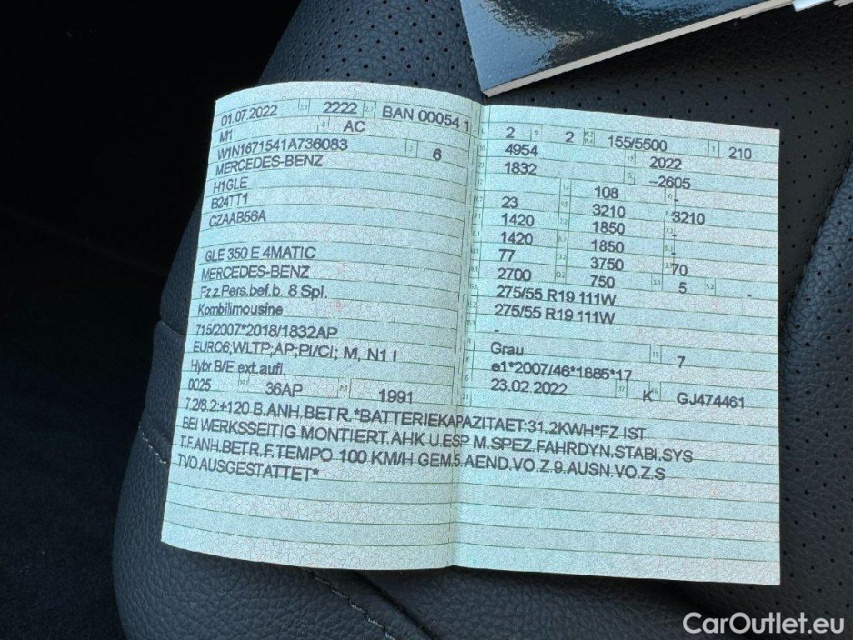 01.07.2022 2222 BAN 00054 1
M1 AC
W1N1671541A736083 6
MERCEDES-BENZ
H1GLE
B24TT1
CZAAB56A
GLE 350 E 4MATIC
MERCEDES-BENZ
Fz.z.Pers.bef.b. 8 Spl.
Kombilimousine
715/2007*2018/1832AP
EURO6;WLTP;AP;PI/CI; M, N1 I
Hybr.B/E ext.aufl.
0025 36AP 1991
2 2 155/5500 210
4954 2022
1832 --2605
108 -
23 3210 3210
1420 1850 -
1420 1850 -
77 3750 70
2700 750 5 -
275/55 R19 111W
275/55 R19 111W
-
Grau 7
e1*2007/46*1885*17
23.02.2022 K GJ474461
7.2/6.2:+120 B.ANH.BETR.*BATTERIEKAPAZITAET:31.2KWH*FZ IST
BEI WERKSSEITIG MONTIERT.AHK U.ESP M.SPEZ.FAHRDYN.STABI.SYS
T.F.ANH.BETR.F.TEMPO 100 KM/H GEM.5.AEND.VO.Z.9.AUSN.VO.Z.S
TVO.AUSGESTATTET*
CarOutlet.eu